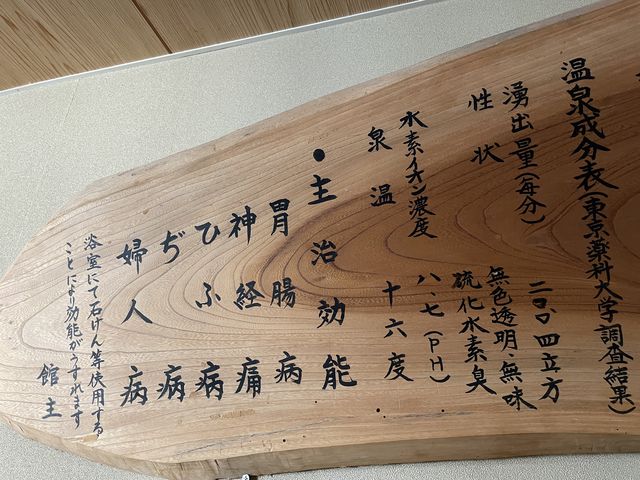 温泉成分表(東京薬科大学調査結果)
湧出量(毎分) 二〇〇、四立方
性状 無色透明・無味
硫化水素臭
水素イオン濃度 八・七(PH)
泉温 十六度
●主治効能
胃腸病
神経痛
ひふ病
ぢ病
婦人病
浴室にて石けん等使用する
ことにより効能がうすれます
館主